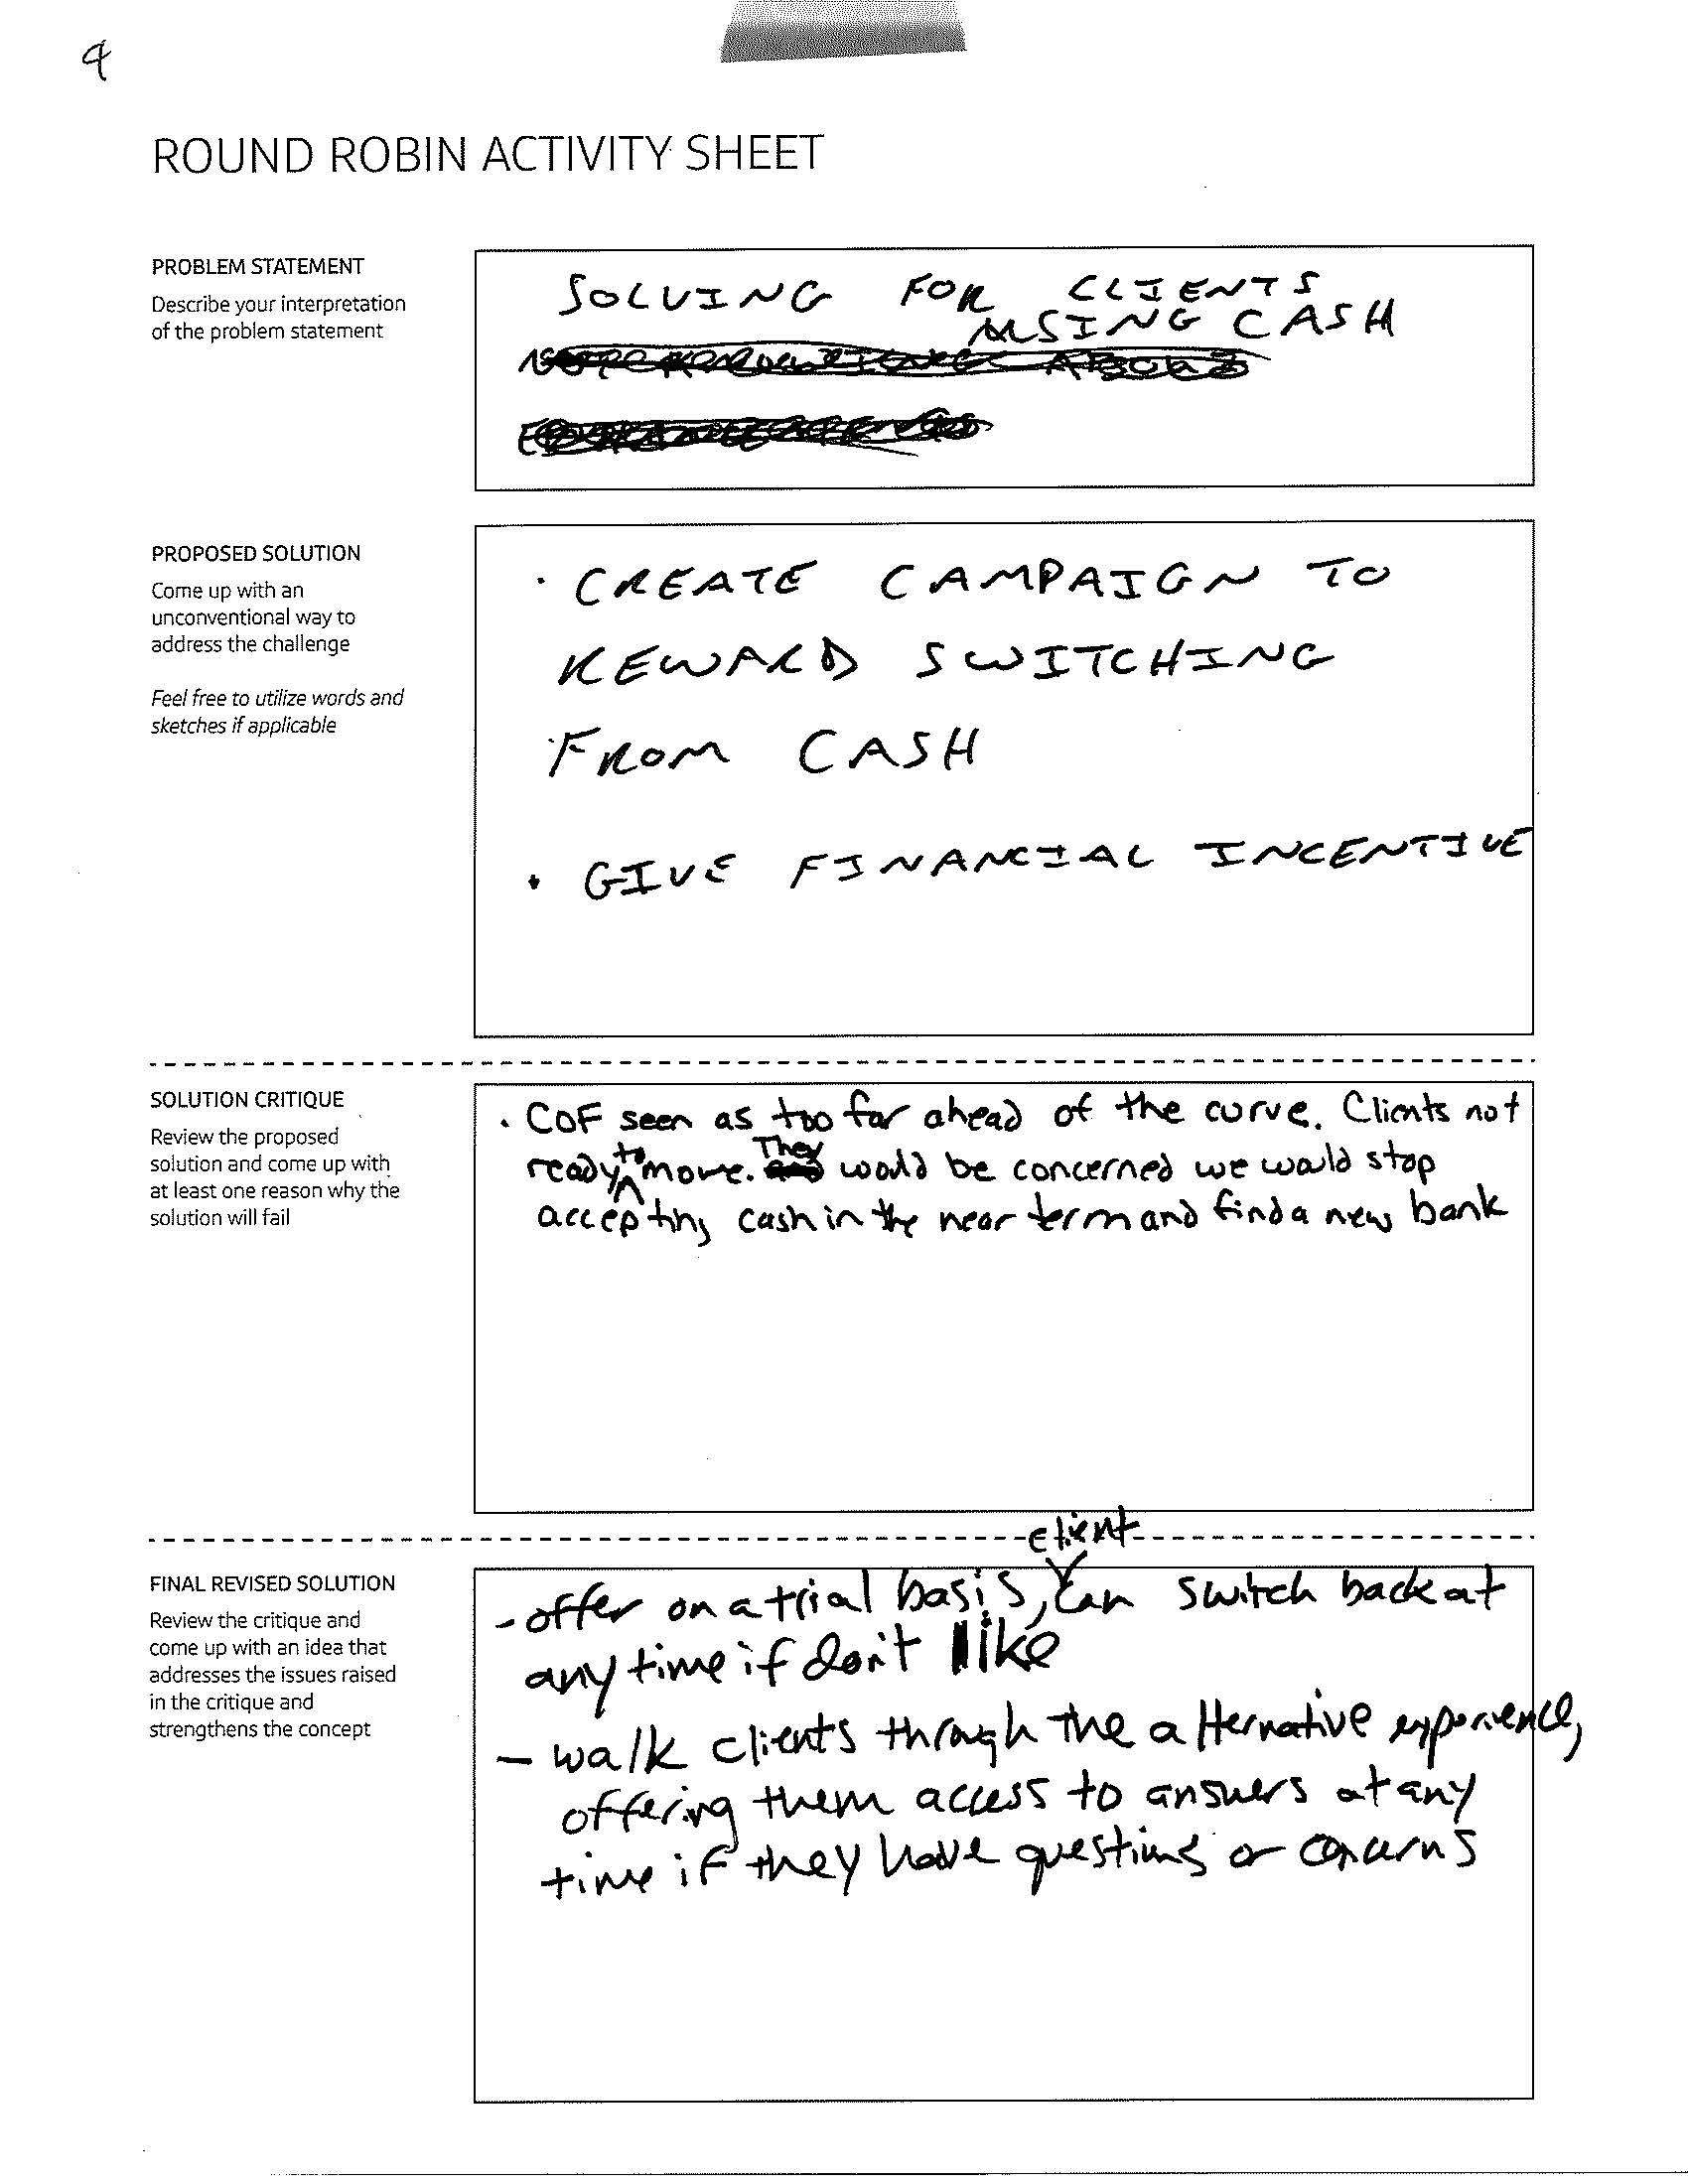 ROUND ROBIN ACTIVITY SHEET
PROBLEM STATEMENT
Describe your interpretation
of the problem statement
SOLVING FOR CLIENTS
USING CASH
PROPOSED SOLUTION
Come up with an
unconventional way to
address the challenge
Feel free to utilize words and
sketches if applicable
• CREATE CAMPAIGN TO
REWARD SWITCHING
FROM CASH
• GIVE FINANCIAL INCENTIVE
SOLUTION CRITIQUE
Review the proposed
solution and come up with
at least one reason why the
solution will fail
• COF seen as too far ahead of the curve. Clients not
ready to move. They would be concerned we would stop
accepting cash in the near term and find a new bank
FINAL REVISED SOLUTION
Review the critique and
come up with an idea that
addresses the issues raised
in the critique and
strengthens the concept
- offer on a trial basis, client can switch back at
any time if don't like
- walk clients through the alternative experience,
offering them access to answers at any
time if they have questions or concerns